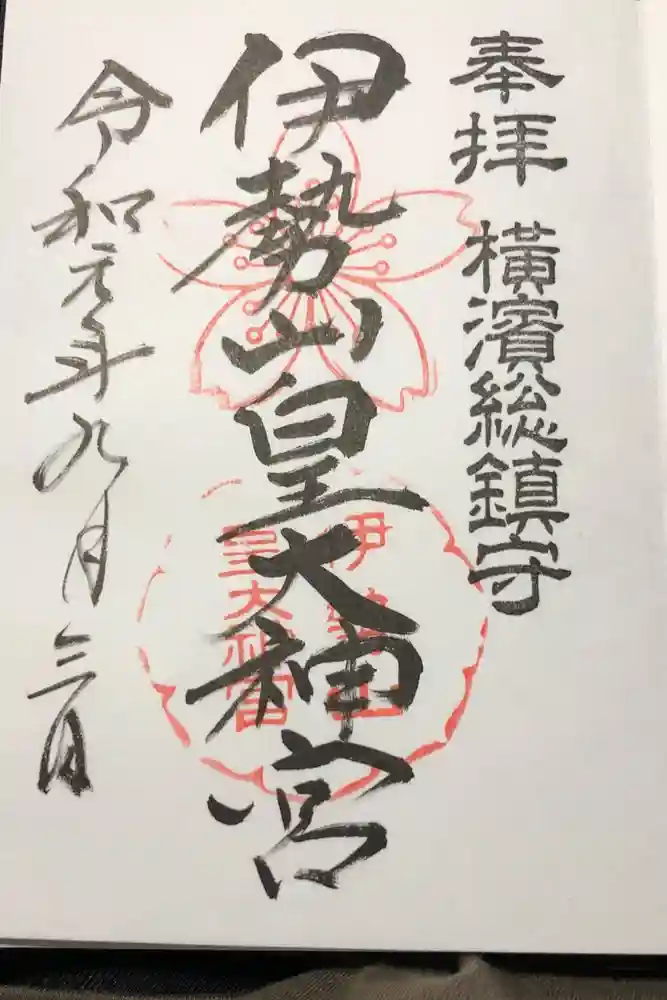 奉拝 横濱総鎮守
伊勢山皇大神宮
伊勢山
皇大神宮
令和元年九月三日